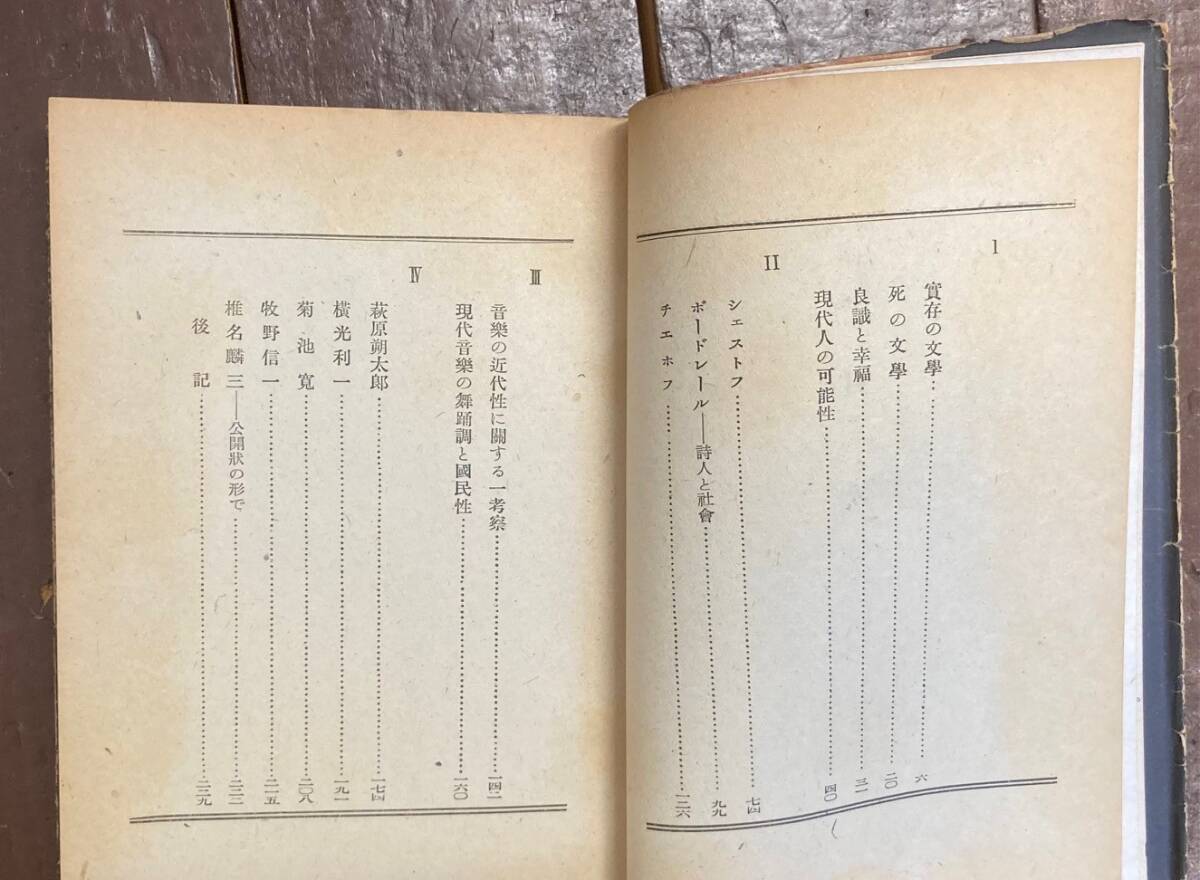 I
實存の文學……………………六
死の文學……………………二〇
良識と幸福……………………三一
現代人の可能性……………………四〇
II
シェストフ……………………七四
ボードレール——詩人と社會……………………九九
チエホフ……………………一二六
III
音樂の近代性に關する一考察……………………一四二
現代音樂の舞踊調と國民性……………………一六〇
IV
萩原朔太郎……………………一七四
横光利一……………………一九一
菊池寛……………………二〇八
牧野信一……………………二一五
椎名麟三——公開狀の形で……………………二三三
後記……………………二三九